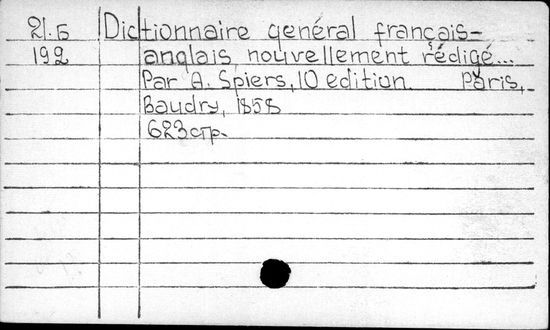 21.Б Dictionnaire genéral français-
192 anglais, nouvellement rédigé...
Par A. Spiers, 10 edition. Paris,
Baudry, 1858
623 стр.